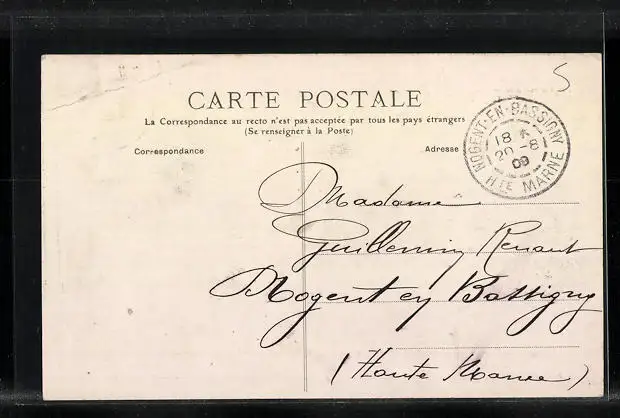 5
CARTE POSTALE
La Correspondance au recto n'est pas acceptée par tous les pays étrangers
(Se renseigner à la Poste)
Correspondance
Adresse
NOGENT-EN-BASSIGNY
18 *
20 -8
09
HTE MARNE
Madame
Guillemin Renaut
Nogent en Bassigny
(Haute Marne)